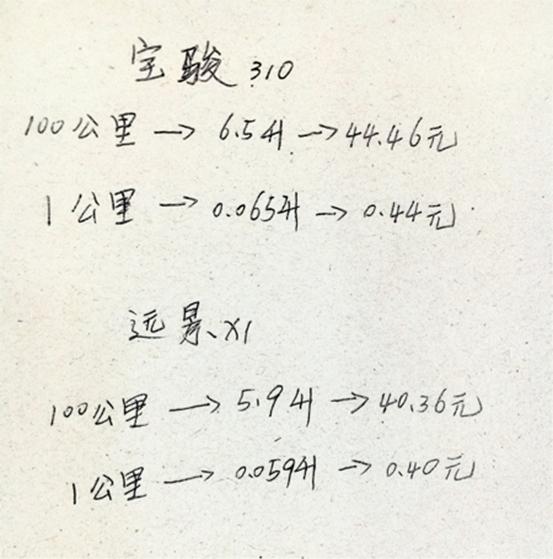 宝骏 310
100公里 → 6.5升 → 44.46元
1公里 → 0.065升 → 0.44元
远景、X1
100公里 → 5.9升 → 40.36元
1公里 → 0.059升 → 0.40元